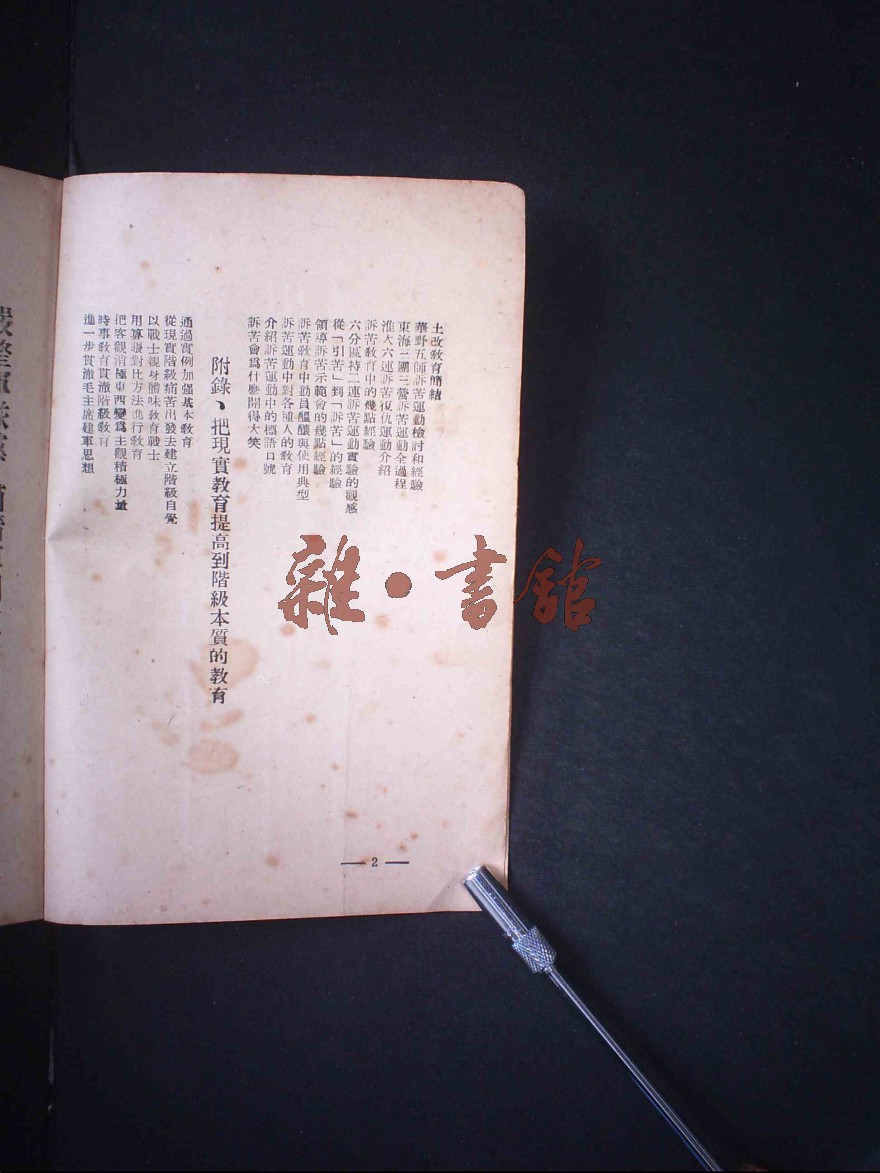 土改教育簡結
華野五師訴苦運動檢討和經驗
東海二團三營訴苦運動全過程
淮大六連訴苦復仇運動介紹
訴苦教育中的幾點經驗
六分區持二連訴苦運動實驗的觀感
從「引苦」到「訴苦」的經驗
領導訴苦示範會的幾點經驗
訴苦教育中動員醞釀與使用典型
訴苦運動中對各種人的教育
介紹訴苦運動中的標語口號
訴苦會爲什麼開得大笑
附錄、把現實教育提高到階級本質的教育
通過實例加强基本教育
從現實階級痛苦出發去建立階級自覺
以戰士親身體味教育戰士
用算賬對比方法進行教育
把客觀消極東西變爲主觀積極力量
時事教育貫澈階級教育
進一步貫澈毛主席建軍思想
— 2 —
雜·書館